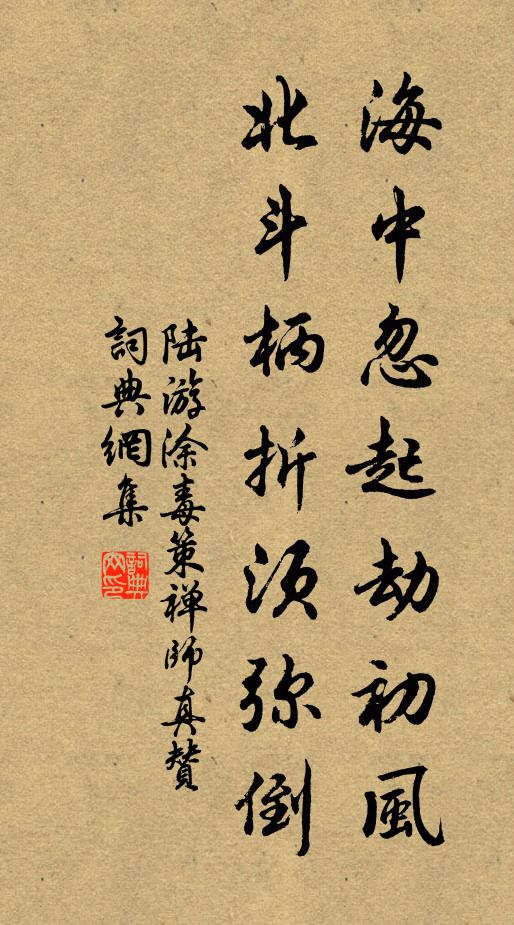 海中忽起劫初風
北斗柄折須弥倒
陆游涂毒策禅師真贊
詞典網集
詞典网印